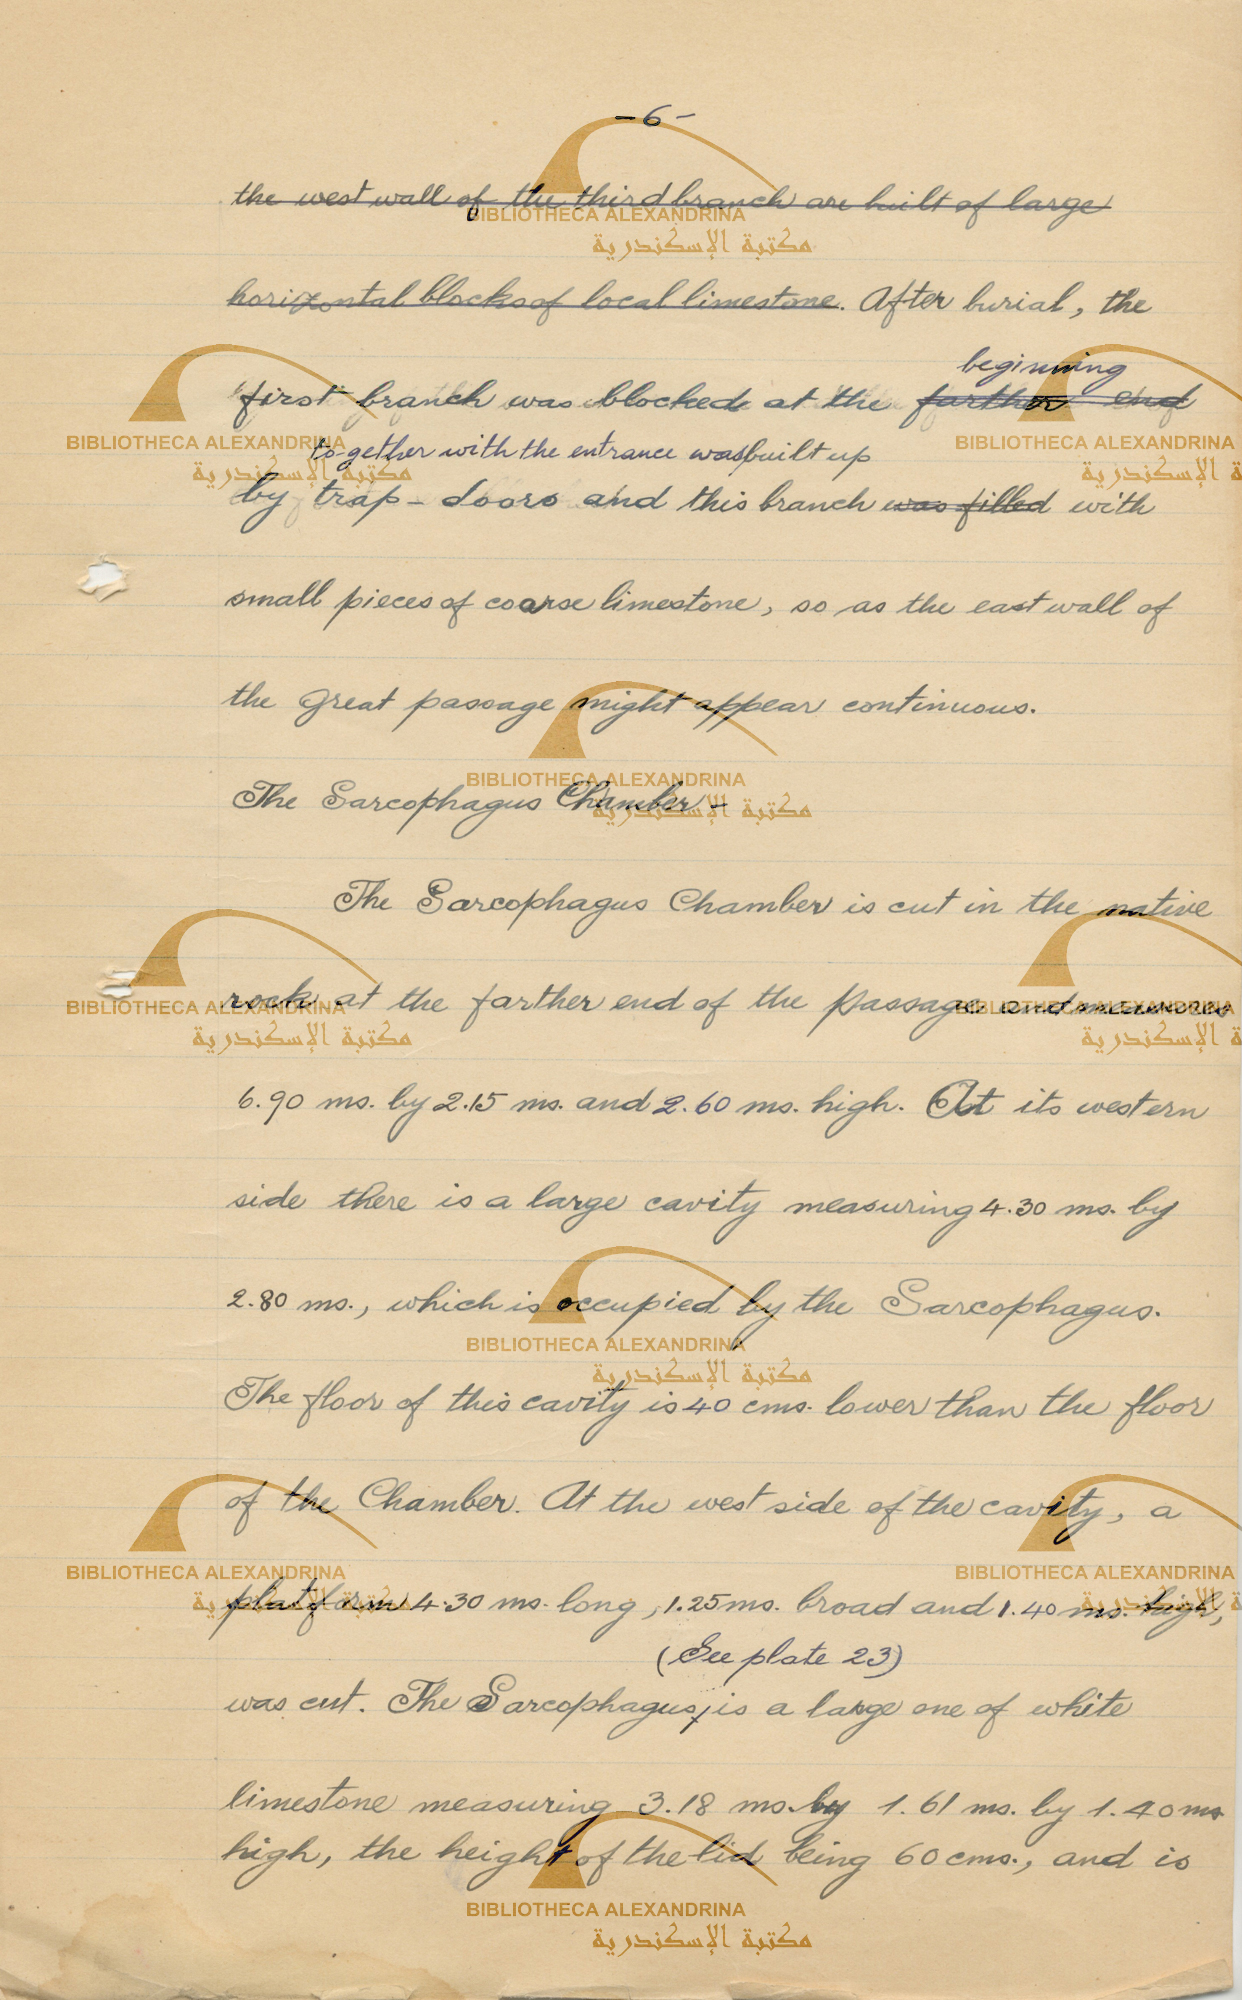 -6-
the west wall of the third branch are built of large
horizontal blocks of local limestone. After burial, the
beginning
"first" branch was blocked at the further end
together with the entrance was built up
by trap-doors and this branch was filled with
small pieces of coarse limestone, so as the east wall of
the great passage might appear continuous.
The Sarcophagus Chamber -
The Sarcophagus Chamber is cut in the native
rock at the farther end of the passage and measures
6.90 ms. by 2.15 ms. and 2.60 ms. high. At its western
side there is a large cavity measuring 4.30 ms. by
2.80 ms., which is occupied by the Sarcophagus.
The floor of this cavity is 40 cms. lower than the floor
of the Chamber. At the west side of the cavity, a
platform 4.30 ms. long, 1.25 ms. broad and 1.40 ms. high,
(See plate 23)
was cut. The Sarcophagus, is a large one of white
limestone measuring 3.18 ms. by 1.61 ms. by 1.40 ms
high, the height of the lid being 60 cms., and is
BIBLIOTHECA ALEXANDRINA
مكتبة الإسكندرية